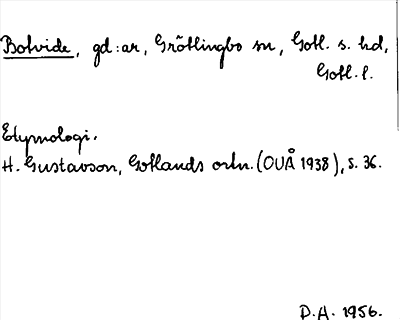 Botvide, gd:ar, Grötlingbo sn, Gotl. s. hd,
Gotl. l.
Etymologi.
H. Gustavson, Gotlands ortn. (OUÅ 1938), s. 36.
P.A. 1956.